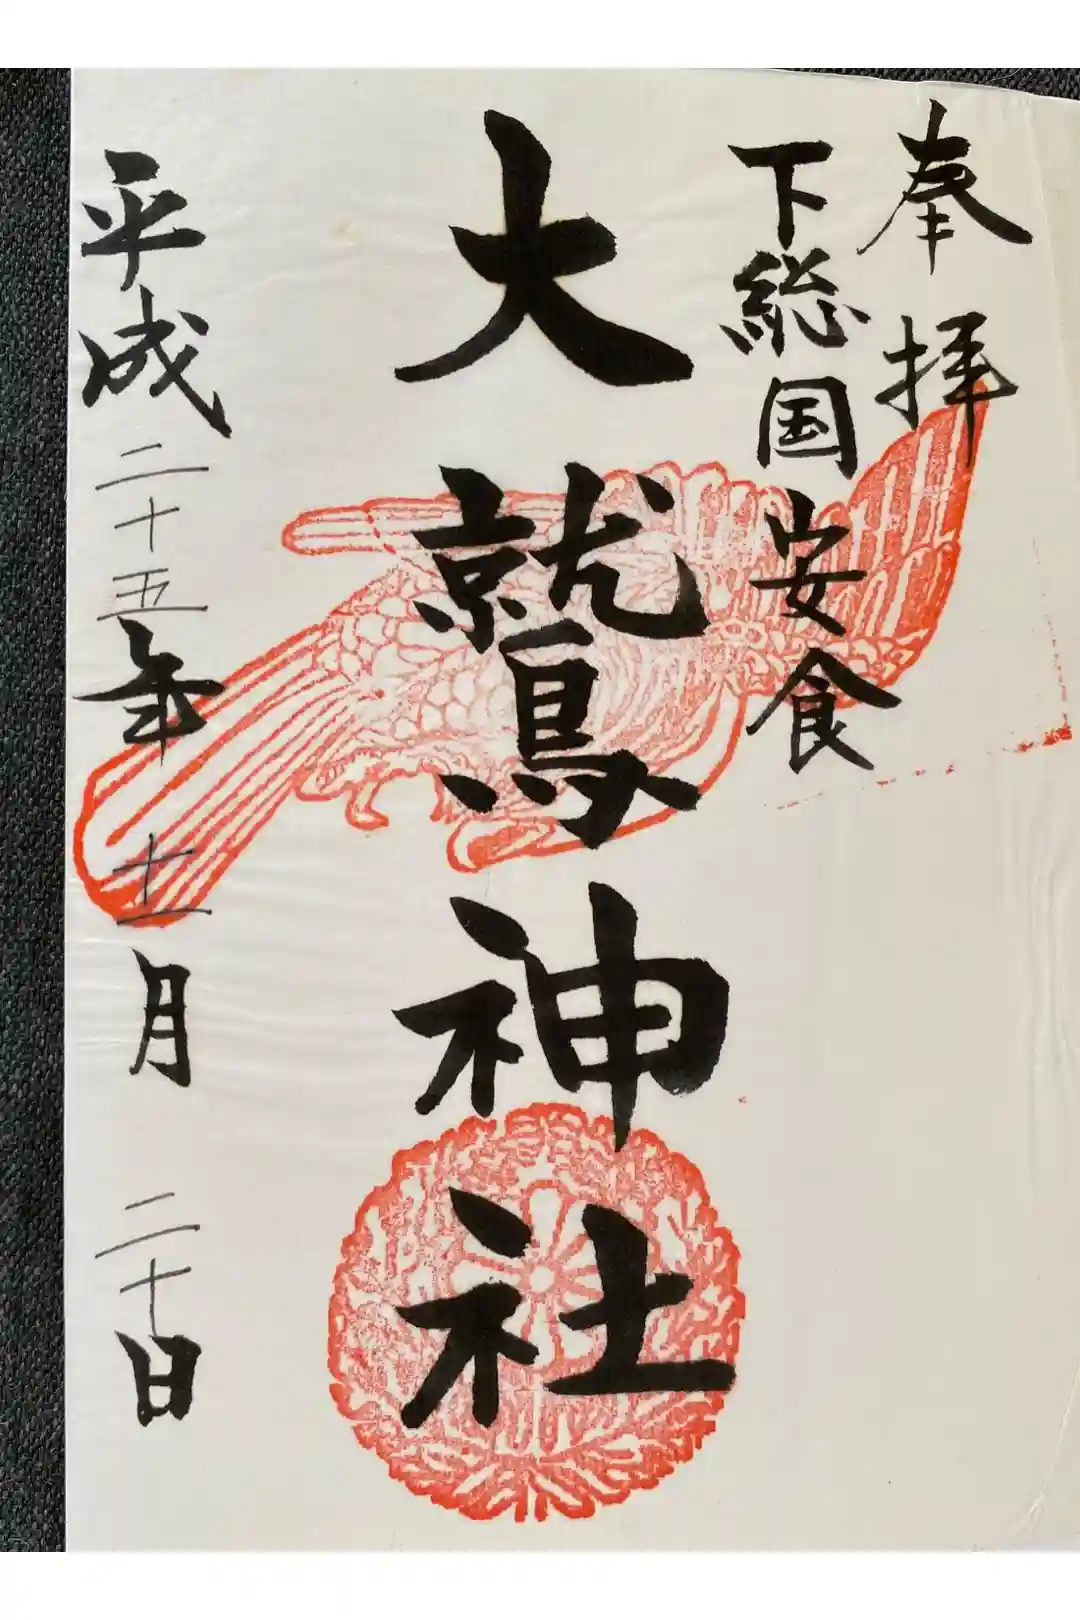 奉拝
下総国安食
大鷲神社
平成二十五年十一月二十日